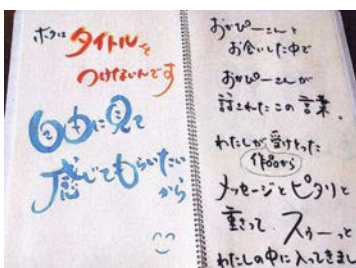 ボクは タイトルを
つけないんです
自由に見て
感じてもらいたい
から
おかぴーさんと
お会いした中で
おかぴーさんが
話されたこの言葉。
わたしが受けとった
作品から
メッセージとピタリと
重さって スゥーっと
わたしの中に入ってきまし